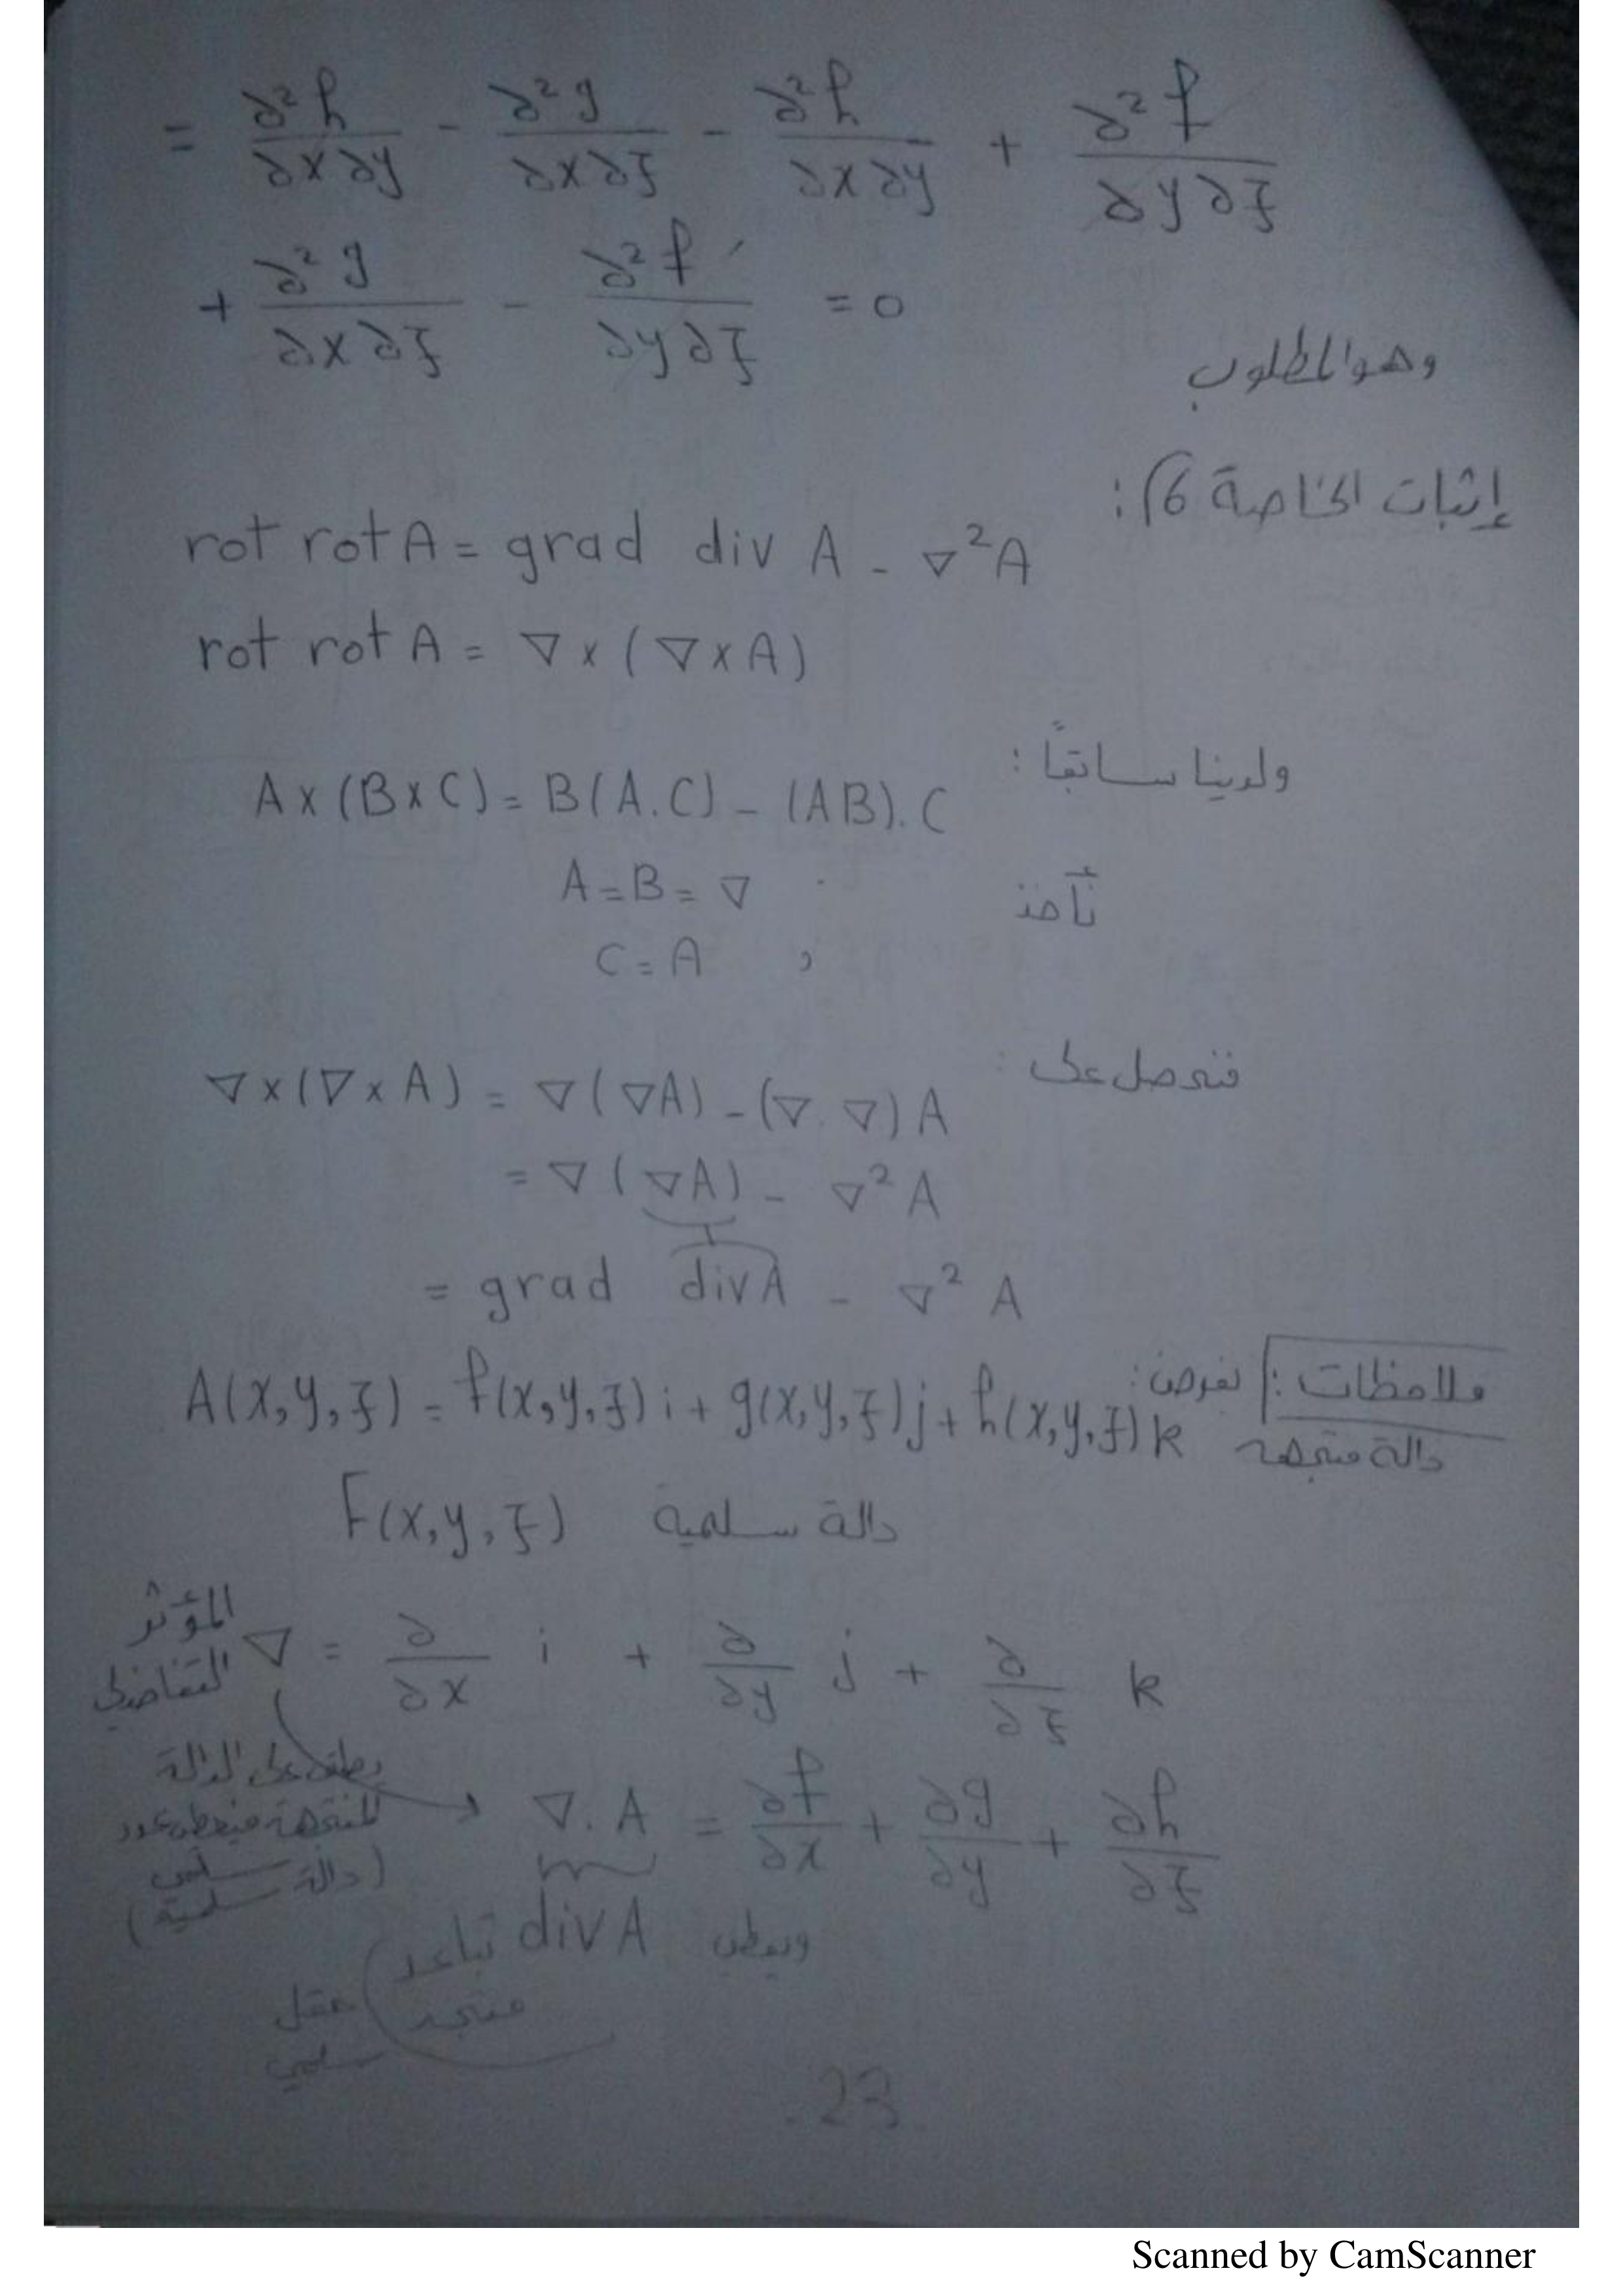 = ∂²h/∂x∂y - ∂²g/∂x∂z - ∂²h/∂x∂y + ∂²f/∂y∂z
+ ∂²g/∂x∂z - ∂²f/∂y∂z = 0
وهو المطلوب
إثبات الخاصة 6) :
rot rot A = grad div A - ∇²A
rot rot A = ∇ x ( ∇ x A )
ولدينا سابقاً :
A x (B x C) = B(A.C) - (AB).C
نأخذ A = B = ∇
, C = A
فنحصل على :
∇ x (∇ x A) = ∇(∇A) - (∇.∇)A
= ∇(∇A) - ∇²A
= grad div A - ∇² A
ملاحظات : نفرض :
A(x,y,z) = f(x,y,z) i + g(x,y,z) j + h(x,y,z) k دالة متجهة
F(x,y,z) دالة سلمية
المؤثر التفاضلي ∇ = ∂/∂x i + ∂/∂y j + ∂/∂z k
يطبق على الدالة
المتجهة فيعطي
سلمي (دالة
سلمية)
∇.A = ∂f/∂x + ∂g/∂y + ∂h/∂z
ويعطي div A تباعد
متجه ) حقل
سلمي
.23.
Scanned by CamScanner